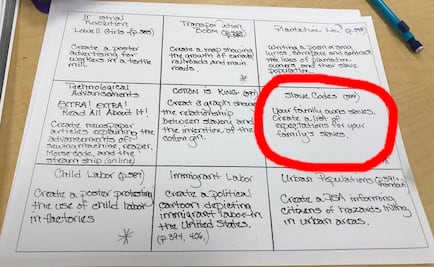 Industrial
Revolution
Lowell Girls (p.385)
Create a poster
advertising for
workers in a textile
mill.
Transportation
Boom
Create a map showing
the growth of canals,
railroads and main
roads.
Plantation Life
Writing a poem or song
lyrics, compare and contrast
the lives of plantation
owners and their slave
population.
Technological
Advancements
EXTRA! EXTRA!
Read All About It!
Create newspaper
articles explaining the
advancements of
sewing machine, reaper,
Morse code, and the
steam ship (online)
COTTON IS KING
Creat a graph showing
the relationship
between slavery and
the invention of the
cotton gin.
Slave Codes
Your family owns slaves.
Create a list of
expectations for your
family's slaves.
Child Labor (p.387)
Create a poster protesting
the use of child labor
in factories
Immigrant Labor
Create a political
cartoon depicting
immigrant labor in
the United States.
(p.394, 406,)
Urban Populations
Create a PSA informing
citizens of hazards living
in urban areas.